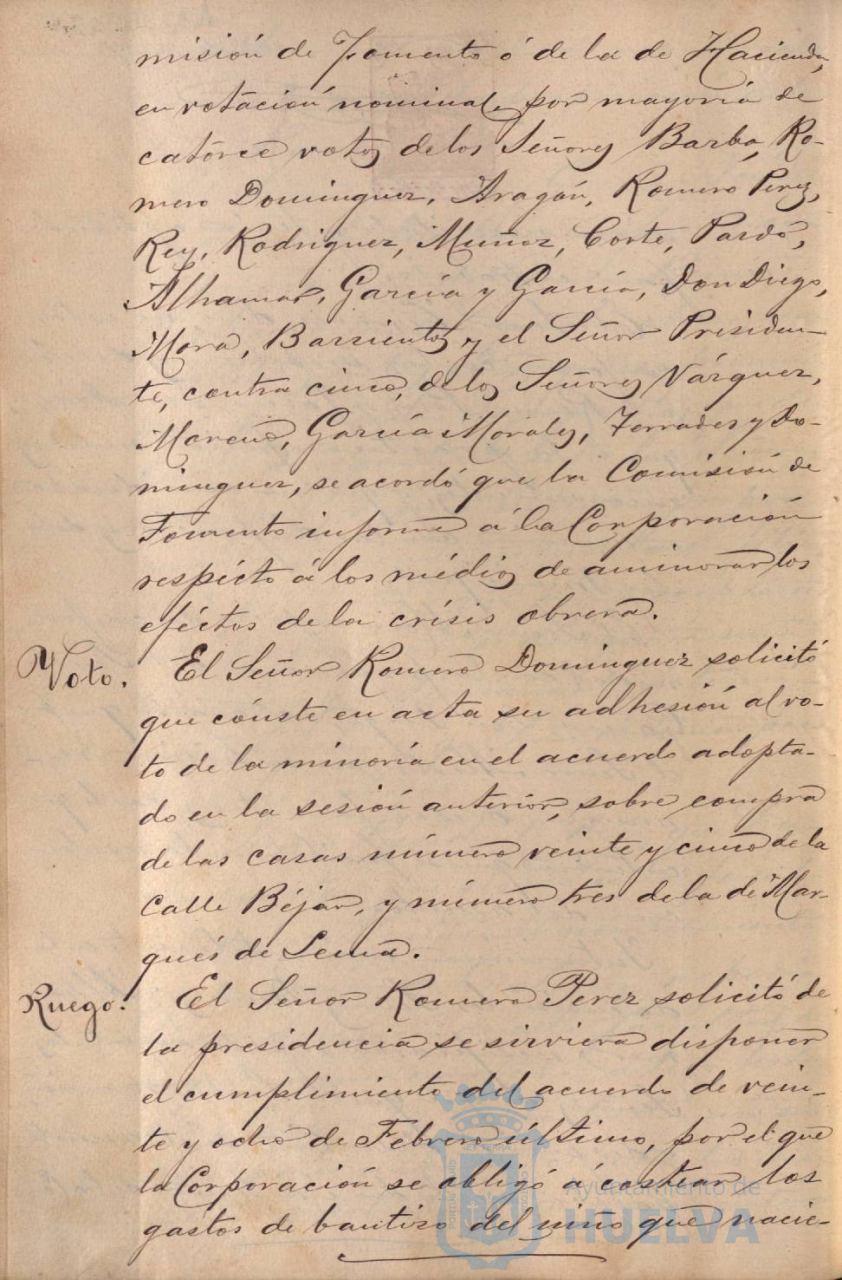 misión de Fomento ó de la de Hacienda,
en votación nominal, por mayoría de
catórce votos de los Señores Barba, Ro-
mero Dominguez, Aragón, Romero Perez,
Rey, Rodriguez, Muñoz, Corte, Pardo,
Alhamar, García y García, Don Diego,
Mora, Barrientos y el Señor Presiden-
te, contra cinco, de los Señores Vázquez,
Moreno, García Morales, Terrades y Do-
minguez, se acordó que la Comisión de
Fomento informe á la Corporación
respécto á los médios de aminorar los
eféctos de la crísis obrera.
Voto. El Señor Romero Dominguez solicitó
que cónste en acta su adhesión al vo-
to de la minoría en el acuerdo adopta-
do en la sesión anteriór, sobre compra
de las casas número veinte y cinco de la
Calle Béjar, y número tres de la de Mar-
qués de Lema.
Ruego. El Señor Romero Perez solicitó de
la presidencia se sirviera disponer
el cumplimiento del acuerdo de vein-
te y ocho de Febrero último, por el que
la Corporación se obligó á costear los
gastos de bautizo del niño que nacie-
Ayuntamiento de
HUELVA